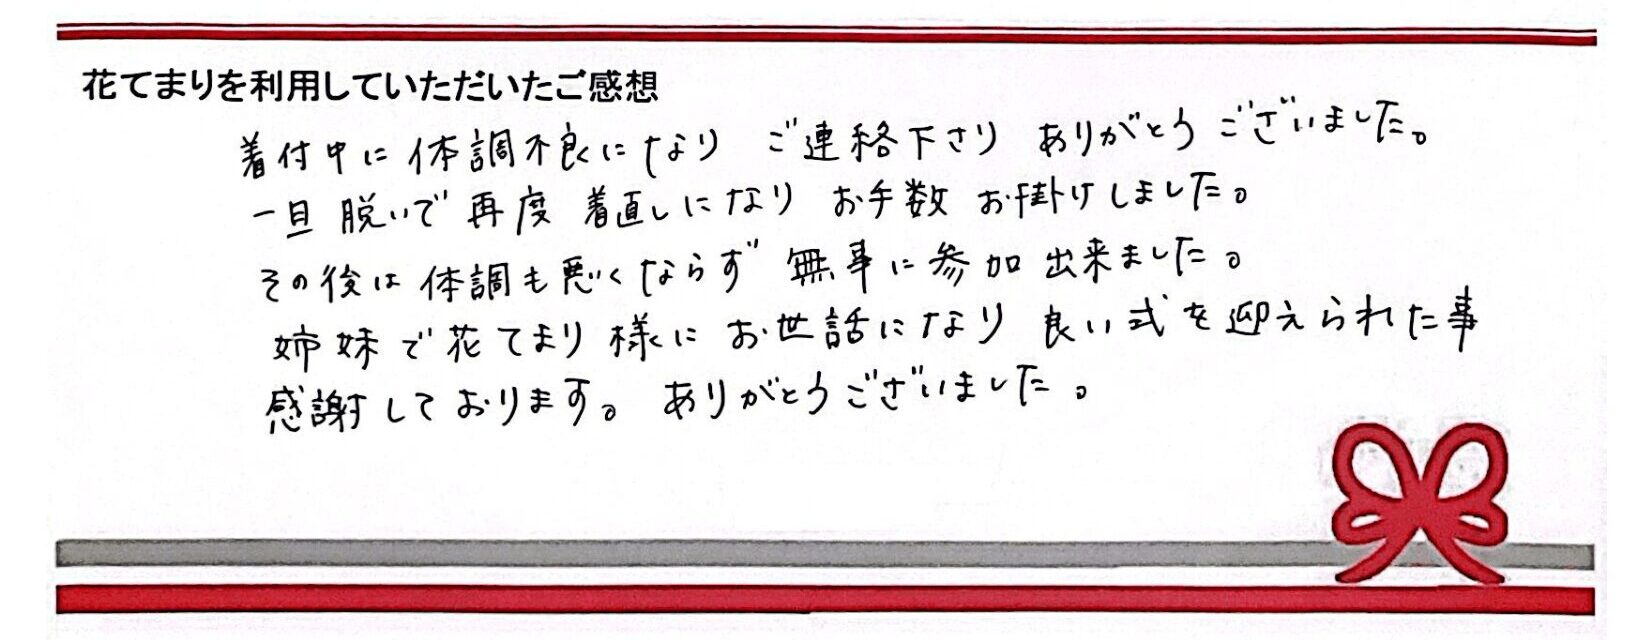 花てまりを利用していただいたご感想
着付中に体調不良になり ご連絡下さり ありがとうございました。
一旦 脱いで 再度 着直しになり お手数 お掛けしました。
その後は 体調も悪くならず 無事に参加 出来ました。
姉妹で花てまり様に お世話になり 良い式を迎えられた事
感謝しております。 ありがとうございました。